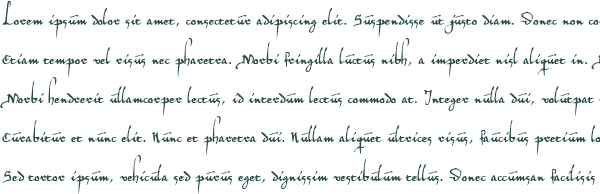 Lorem ipsum dolor sit amet, consectetur adipiscing elit. Suspendisse ut justo diam. Donec non co
Etiam tempor vel risus nec pharetra. Morbi fringilla luctus nibh, a imperdiet nisl aliquet in.
Morbi hendrerit ullamcorper lectus, id interdum lectus commodo at. Integer nulla dui, volutpat
Curabitur et nunc elit. Nunc et pharetra dui. Nullam aliquet ultrices risus, faucibus pretium lo
Sed tortor ipsum, vehicula sed purus eget, dignissim vestibulum tellus. Donec accumsan facilisis